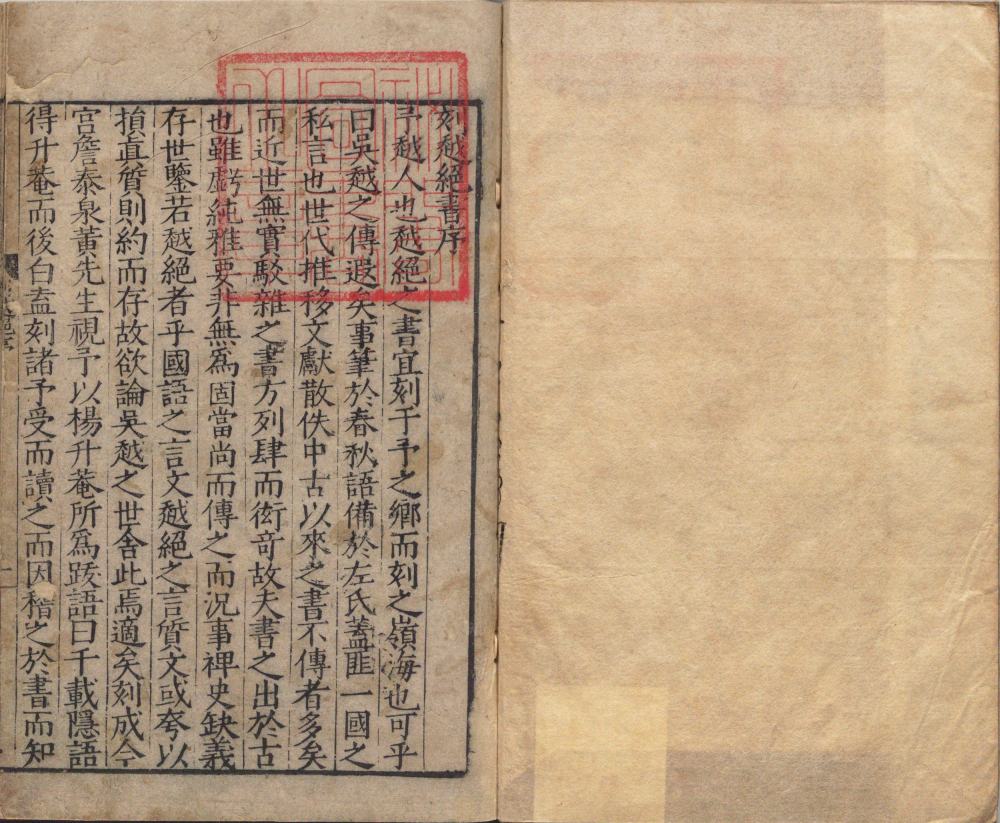 刻越絕書序
予越人也越絕之書宜刻于予之鄉而刻之嶺海也可乎
曰吳越之傳遐矣事筆於春秋語備於左氏蓋匪一國之
私言也世代推移文獻散佚中古以來之書不傳者多矣
而近世無實駁雜之書方列肆而衒竒故夫書之出於古
也雖虧純雅要非無爲固當尚而傳之而況事裨史缺義
存世鑒若越絕者乎國語之言文越絕之言質文或夸以
損眞質則約而存故欲論吳越之世舍此焉適矣刻成今
宫詹泰泉黃先生視予以楊升菴所爲跋語曰千載隱語
得升菴而後白盍刻諸予受而讀之而因稽之於書而知